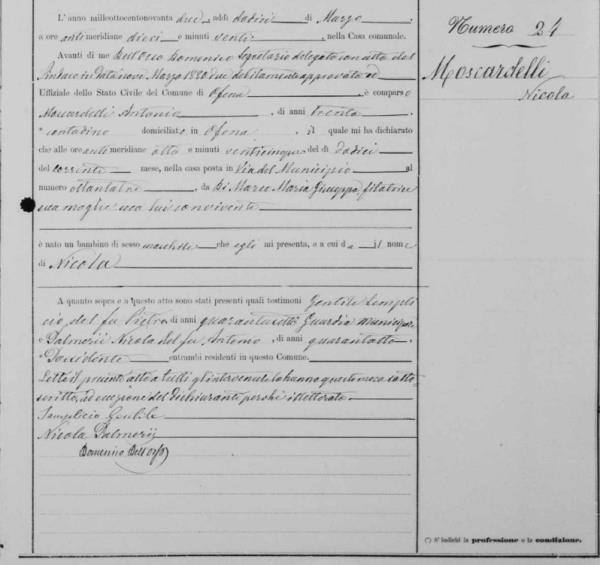 L'anno milleottocentonovanta due, addì dodici di Marzo,
a ore anti meridiane dieci e minuti venti, nella Casa comunale.
Avanti di me Dell'Orso Domenico Segretario delegato con atto del
nove Marzo 1880 due debitamente approvato ed
Uffiziale dello Stato Civile del Comune di Ofena, è comparso
Moscardelli Antonio, di anni trenta
contadino domiciliato in Ofena, il quale mi ha dichiarato
che alle ore anti meridiane otto e minuti venticinque del dì dodici
del corrente mese, nella casa posta in Via del Municipio al
numero ottantatre, da Di Marco Maria Giuseppa, filatrice
sua moglie seco lui convivente
è nato un bambino di sesso maschile che egli mi presenta, e a cui dà il nome
di Nicola
A quanto sopra e a questo atto sono stati presenti quali testimoni Gentile Sempli
cio del fu Pietro, di anni quarantasette, Guardia municipale
e Palmerii Nicola del fu Antonio, di anni quarantotto
Possidente, entrambi residenti in questo Comune.
Letto il presente atto a tutti gl'intervenuti lo hanno questi meco sotto
scritto, ad eccezione del dichiarante perchè illetterato
Semplicio Gentile
Nicola Palmerij
Domenico Dell'Orso
Numero 24
Moscardelli
Nicola
(*) S' indichi la professione o la condizione.